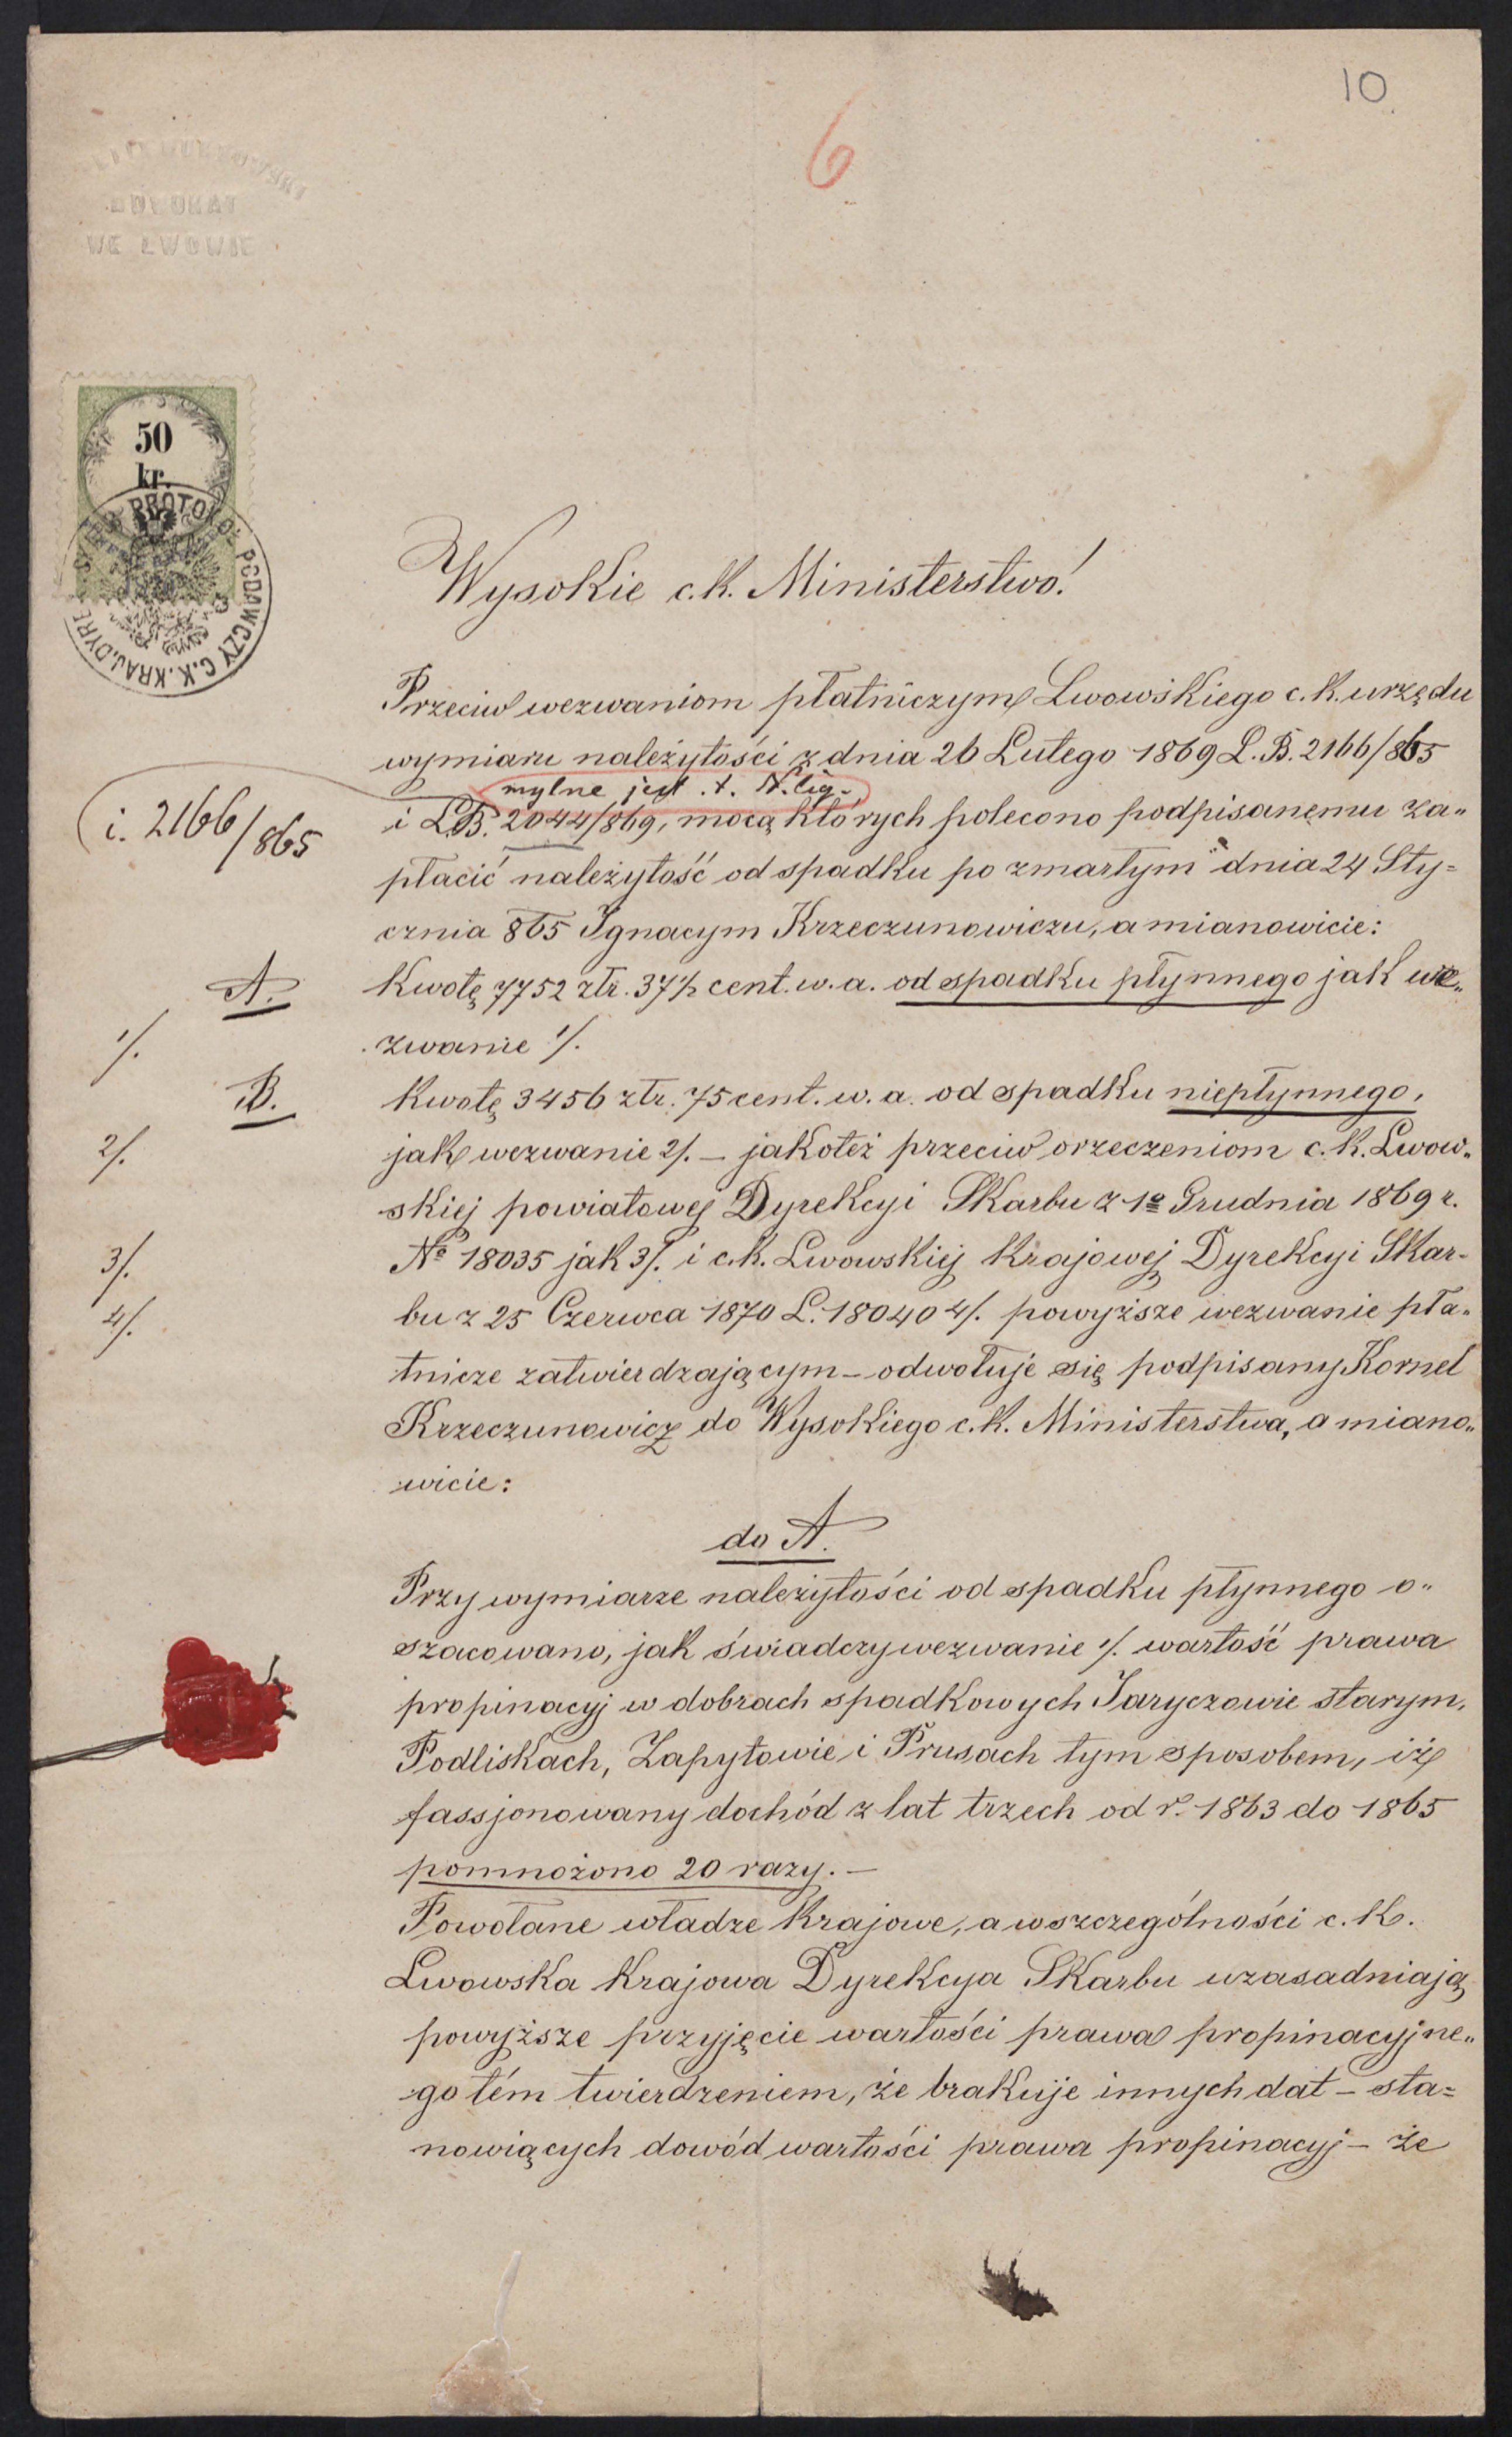 10
6
WE LWOWIE
50
kr.
PROTOKÓŁ PODAWCZY C.K. KRAJ. DYRE
Wysokie c. k. Ministerstwo!
Przeciw wezwaniom płatniczym Lwowskiego c. k. urzędu
wymiaru należytości z dnia 26 Lutego 1869 L. B. 2166/865
mylne jest
i. 2166/865
i LB. 2044/869, mocą których polecono podpisanemu za„
płacić należytość od spadku po zmarłym dnia 24 Sty=
cznia 865 Ignacym Krzeczunowiczu, a mianowicie:
A. Kwotę 7752 złr. 37½ cent. w. a. od spadku płynnego jak we„
1/. zwanie 1/.
B. Kwotę 3456 złr. 75 cent. w. a. od spadku niepłynnego,
2/. jak wezwanie 2/. – jakoteż przeciw orzeczeniom c. k. Lwow„
skiej powiatowej Dyrekcyi Skarbu z 1o Grudnia 1869 r.
3/. No 18035 jak 3/. i c. k. Lwowskiej Krajowej Dyrekcyi Skar-
4/. bu z 25 Czerwca 1870 L. 18040 4/. powyższe wezwanie pła„
tnicze zatwierdzającym – odwołuje się podpisany Kornel
Krzeczunowicz do Wysokiego c. k. Ministerstwa, a miano„
wicie:
do A.
Przy wymiarze należytości od spadku płynnego o„
szacowano, jak świadczy wezwanie 1/. wartość prawa
propinacyj w dobrach spadkowych Jaryczowie starym,
Podliskach, Zapytowie i Prusach tym sposobem, iż
fassjonowany dochód z lat trzech od r. 1863 do 1865
pomnożono 20 razy. –
Powołane władze Krajowe, a w szczególności c. k.
Lwowska Krajowa Dyrekcya Skarbu uzasadniają
powyższe przyjęcie wartości prawa propinacyjne„
go tém twierdzeniem, że brakuje innych dat – sta=
nowiących dowód wartości prawa propinacyj – że